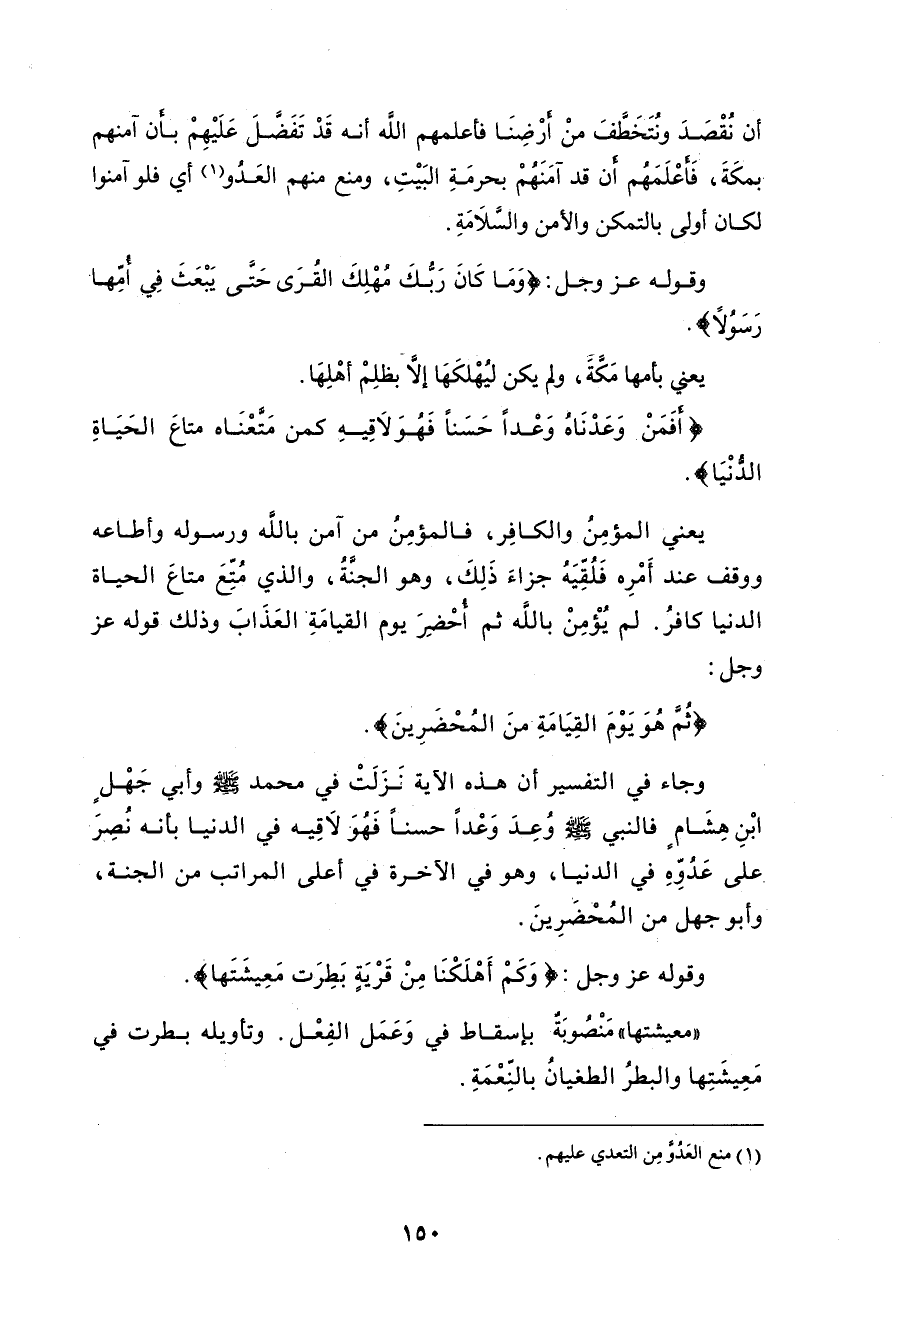 أن نُقْصَـدَ ونُتَخَطَّفَ منْ أَرْضِنَـا فأعلمهم اللَّه أنـه قَدْ تَفَضَّـلَ عَلَيْهِمْ بـأن آمنهم
بمكَةَ، فَأَعْلَمَهُم أَن قد آمَنَهُمْ بحرمَةِ البَيْتِ، ومنع منهم العَـدُو(١) أي فلو آمنوا
لكـان أولى بالتمكن والأمن والسَّلَامَةِ.
وقـولـه عـز وجـل: ﴿وَمَـا كَانَ رَبُّـكَ مُهْلِكَ القُـرَى حَتَّـى يَبْعَثَ فِي أُمِّهـا
رَسُولًا﴾.
يعني بأمها مَكَّةَ، ولم يكن ليُهْلكَهَا إلَّا بظلِمْ أهْلِهَا.
﴿أَفَمَنْ وَعَدْنَاهُ وَعْـداً حَسَنـاً فَهُـوَ لَاقِيـهِ كمن مَتَّعْنَـاه متاعَ الحَيَـاةِ
الدُّنْيَا﴾.
يعني المؤمِنُ والكـافِر، فـالمؤمِنُ من آمن باللَّه ورسـوله وأطـاعه
ووقف عند أَمْرِه فَلُقِّيَهُ جزاءَ ذَلِكَ، وهو الجنَّةُ، والذي مُتِّعَ متاعَ الحيـاة
الدنيا كافرُ. لم يُؤْمِنْ باللَّه ثم أُحْضِرَ يوم القيامَةِ العَذَابَ وذلك قوله عز
وجل:
﴿ثُمَّ هُوَ يَوْمَ القِيَامَةِ منَ المُحْضَرِينَ﴾.
وجاء في التفسير أن هـذه الآية نَـزَلَتْ في محمد ﷺ وأبي جَهْـلٍ
ابْنِ هِشَـامٍ فالنبي ﷺ وُعِـدَ وَعْداً حسنـاً فَهُوَ لَاقِيـه في الدنيـا بأنـه نُصِرَ
على عَدُوِّهِ في الدنيـا، وهو في الآخـرة في أعلى المراتب من الجنـة،
وأبو جهل من المُحْضَرِينَ.
وقوله عز وجل: ﴿وَكَمْ أَهْلَكْنَا مِنْ قَرْيَةٍ بَطِرَت مَعِيشَتَها﴾.
«معيشتها» مَنْصُوبَةٌ بإسقاط في وَعَمَل الفِعْـل. وتأويله بـطرت في
مَعِيشَتِها والبطرُ الطغيانُ بالنِّعْمَةِ.
(١) منع العَدُوَّ مِن التعدي عليهم.
١٥٠